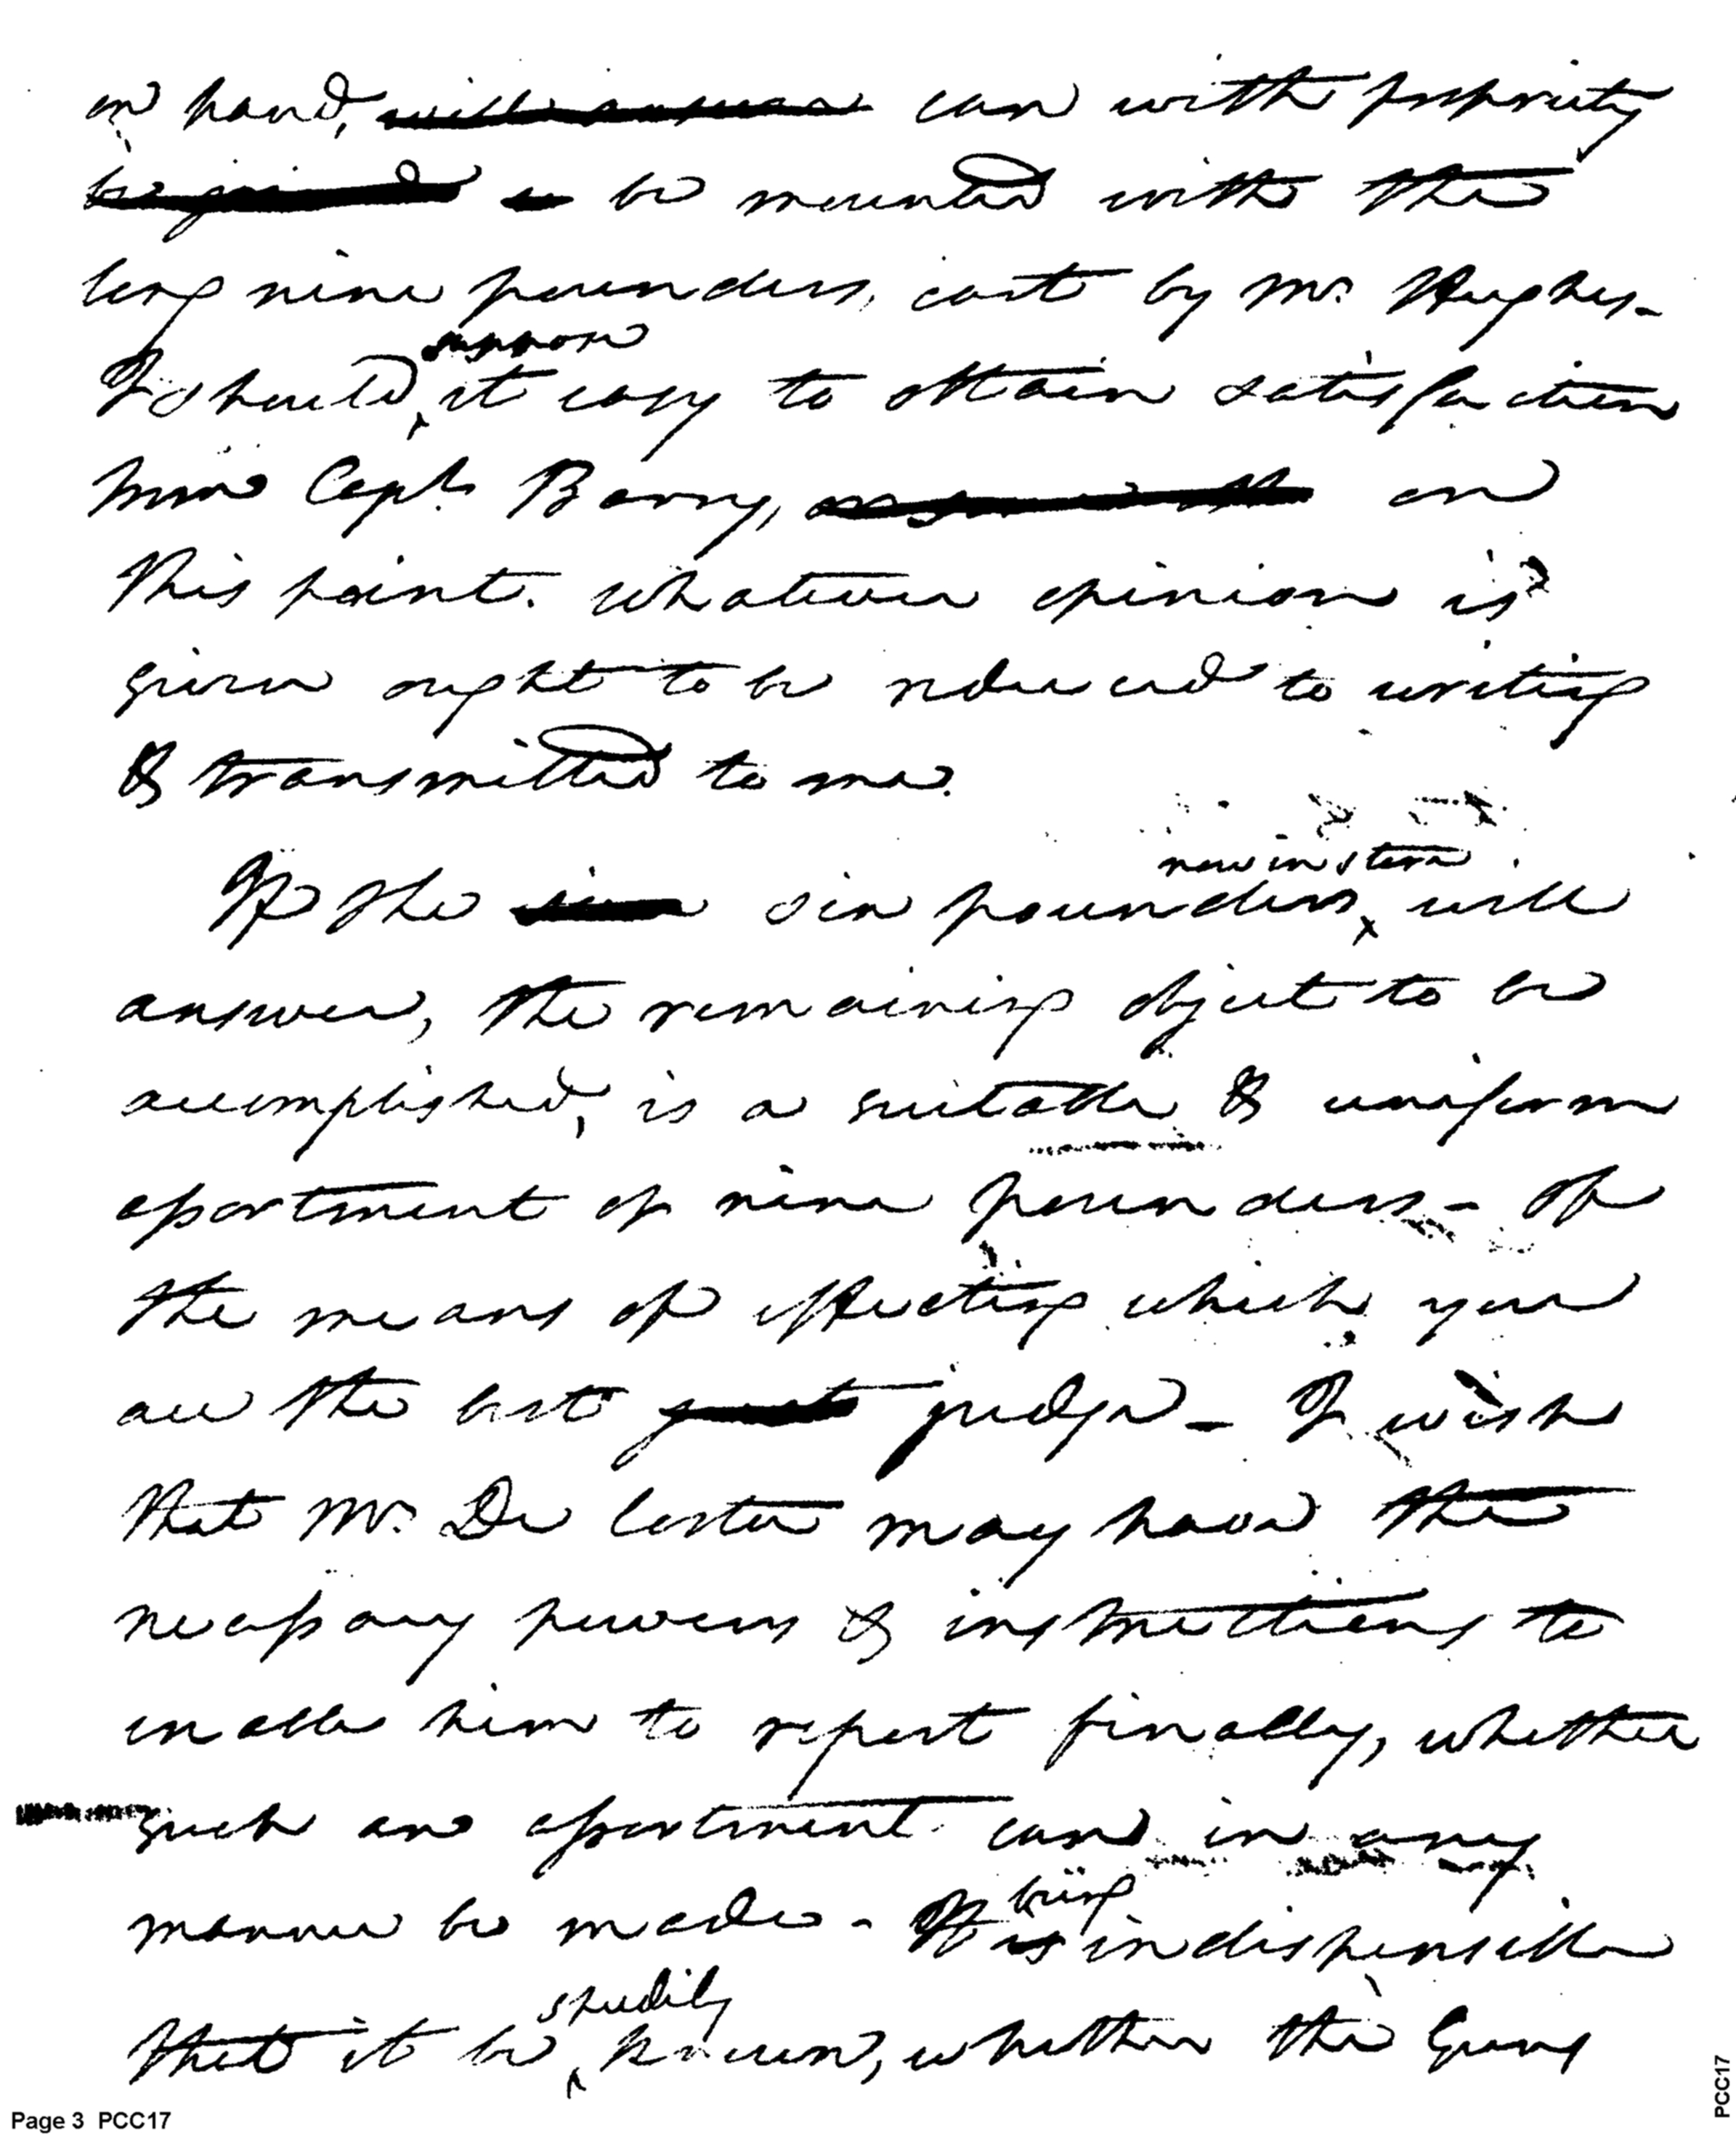 on hand, can with propriety
be mounted with the
long nine pounders, cast by Mr. Hughes-
suppose
I should it easy to obtain satisfaction
from Capt. Barry, on
this point. whatever opinion is
given ought to be reduced to writing
& transmitted to me.
now in store
If the six pounders will
answer, the remaining object to be
accomplished, is a suitable & uniform
assortment of nine pounders - of
the means of effecting which you
are the best judge - I wish
that Mr. De Costa may have the
necessary powers & instructions to
enable him to report finally, whether
such an assortment can in any
manner be made - It
being
is indispensible
speedily
that it be known, whether the Guns
Page 3 PCC17
PCC17